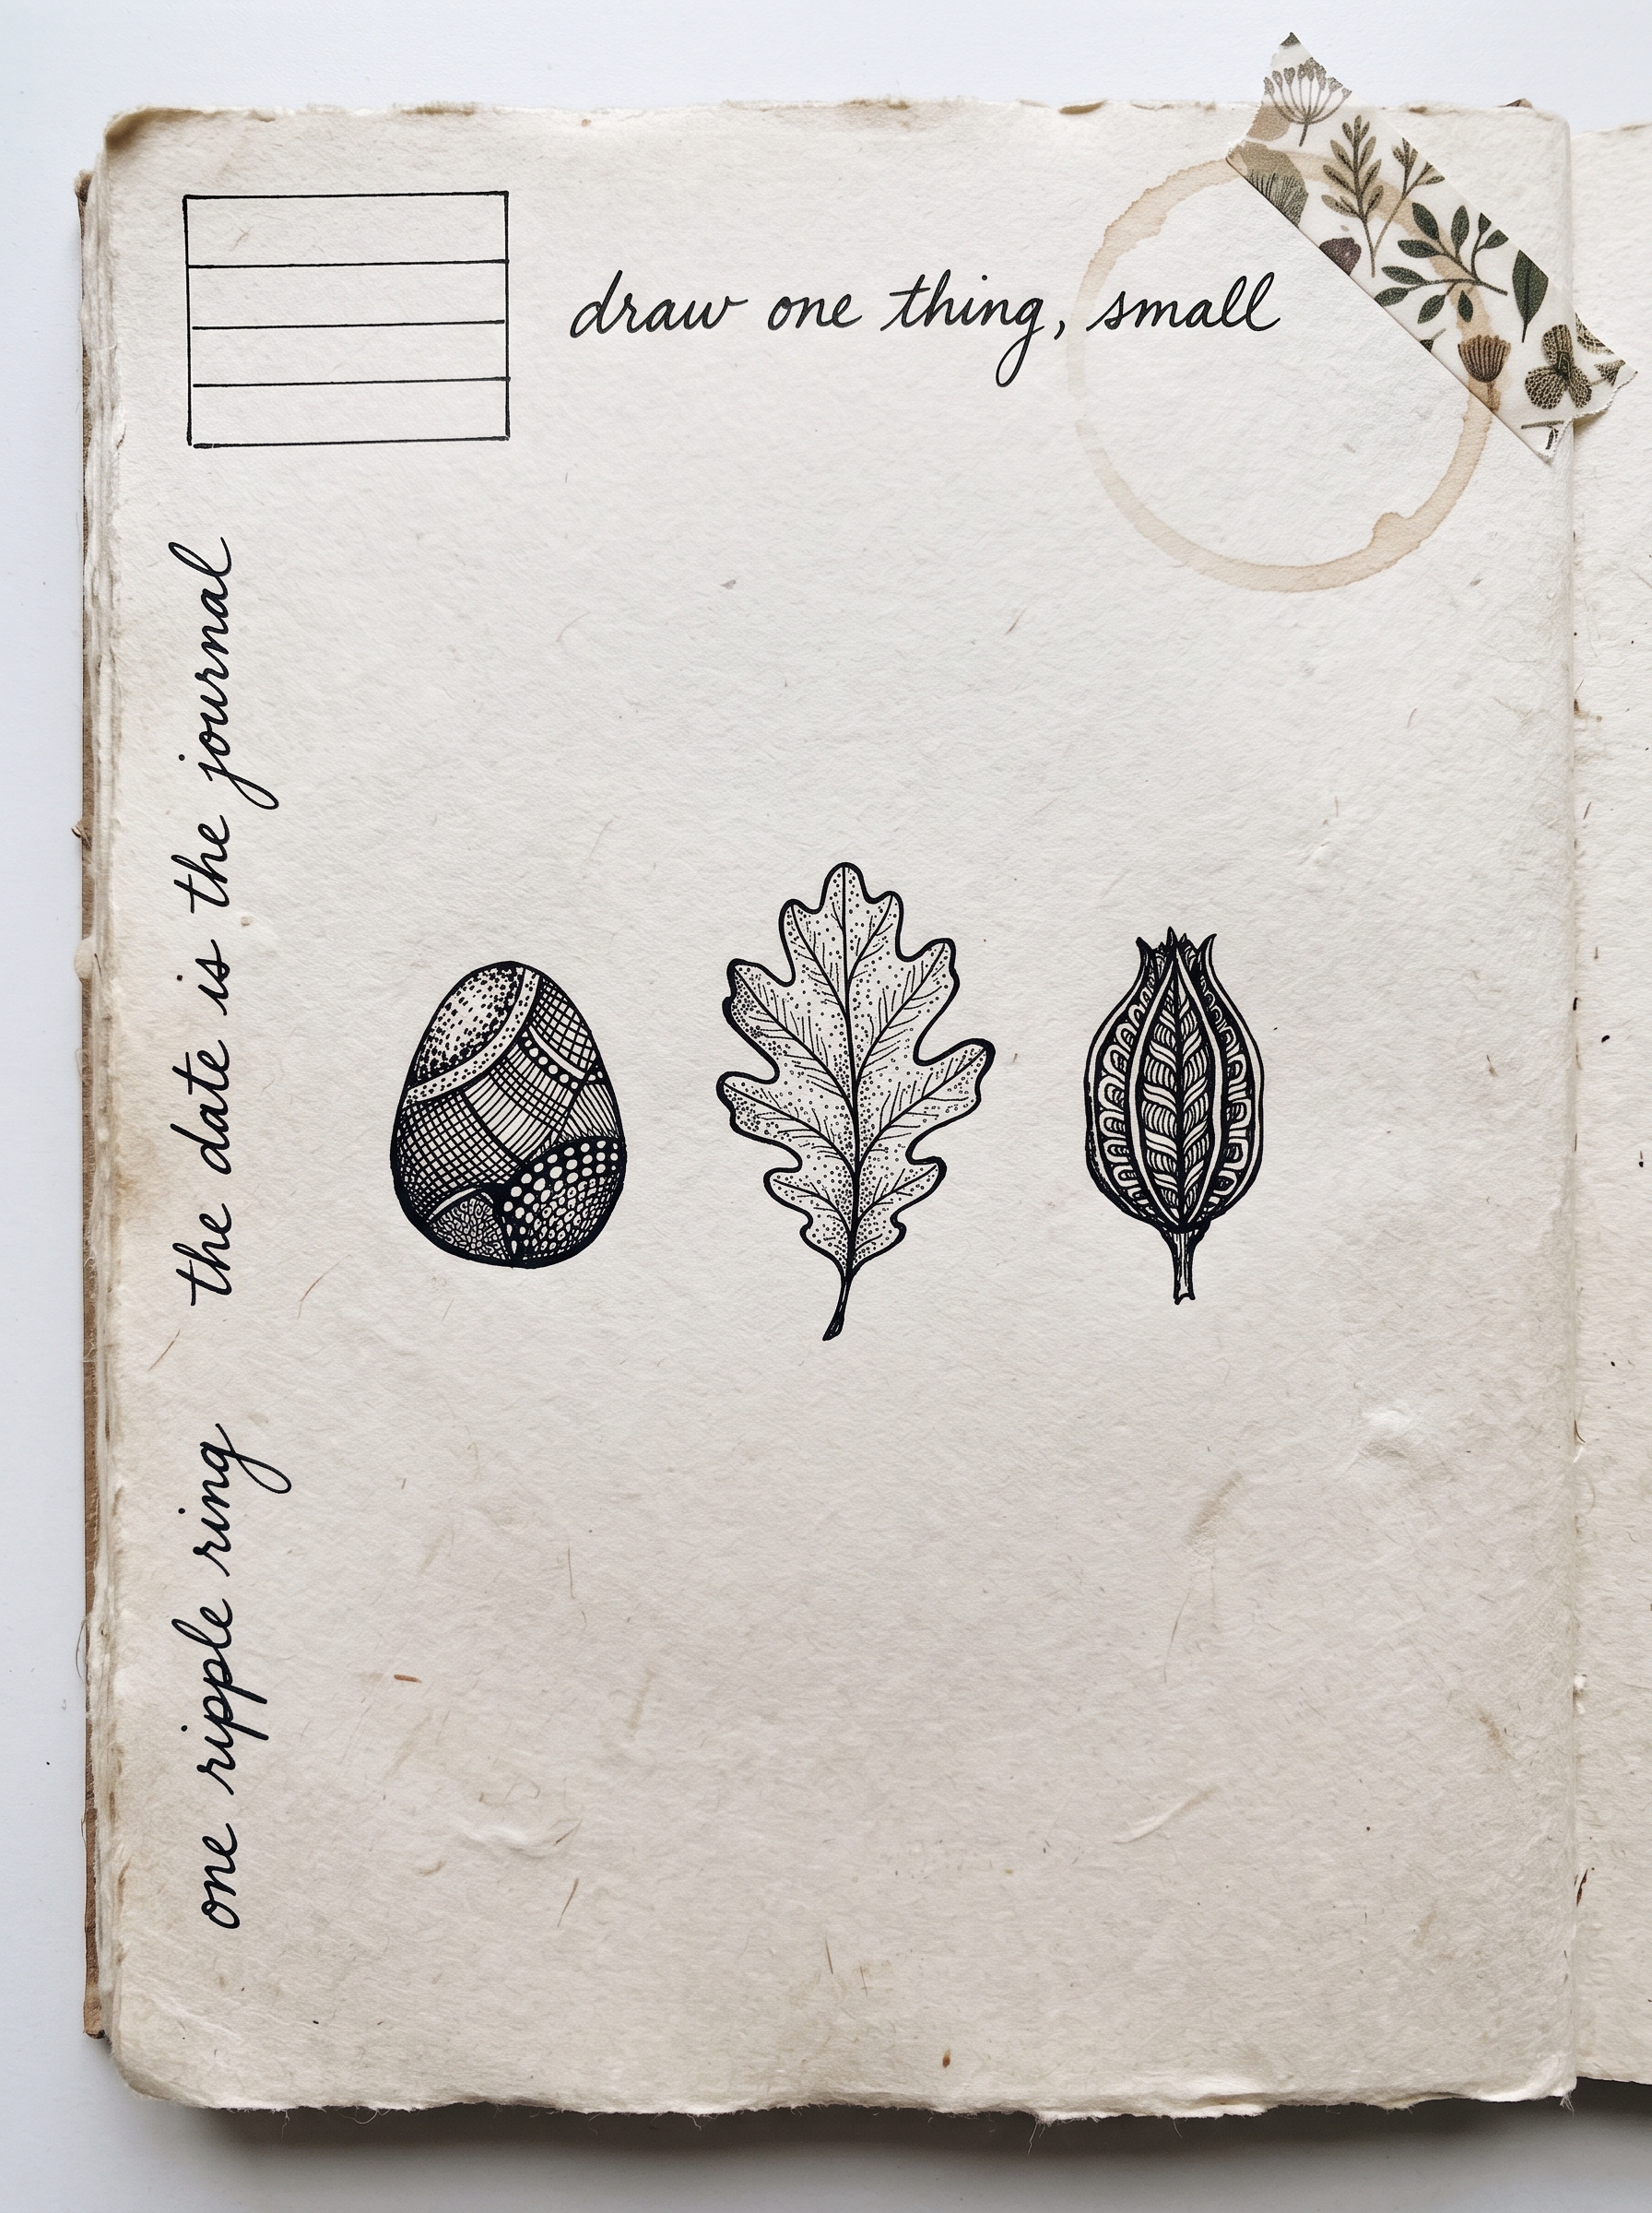 draw one thing, small
the date is the journal
one ripple ring